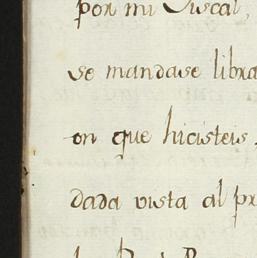 por mi Fiscal,
se mandase libra
on que hicisteis,
dada vista al pr